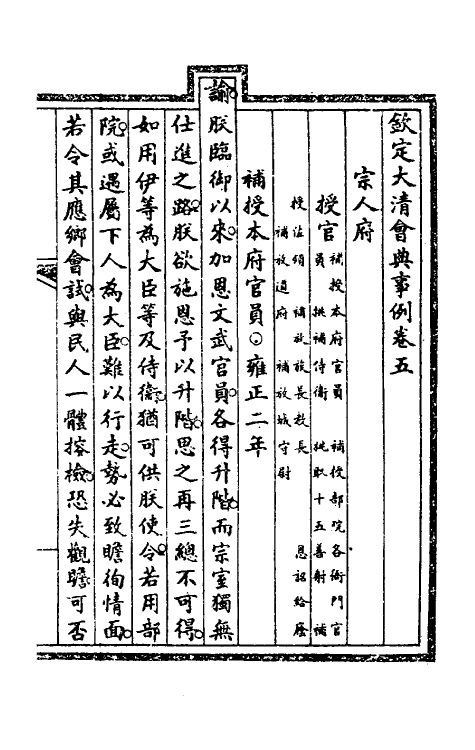 欽定大清會典事例卷五
宗人府
授官 補授本府官員 補授部院各衙門官
員 挑補侍衞 挑取十五善射 補
授佐領 補放族長教長 恩詔給廕
補放道府 補放城守尉
補授本府官員○雍正二年
諭朕臨御以來加恩文武官員各得升階而宗室獨無
仕進之路朕欲施恩予以升階思之再三總不可得
如用伊等為大臣等及侍衞猶可供朕使令若用部
院或遇屬下人為大臣難以行走勢必致瞻徇情面
若令其應鄉會試與民人一體搜檢恐失觀瞻可否